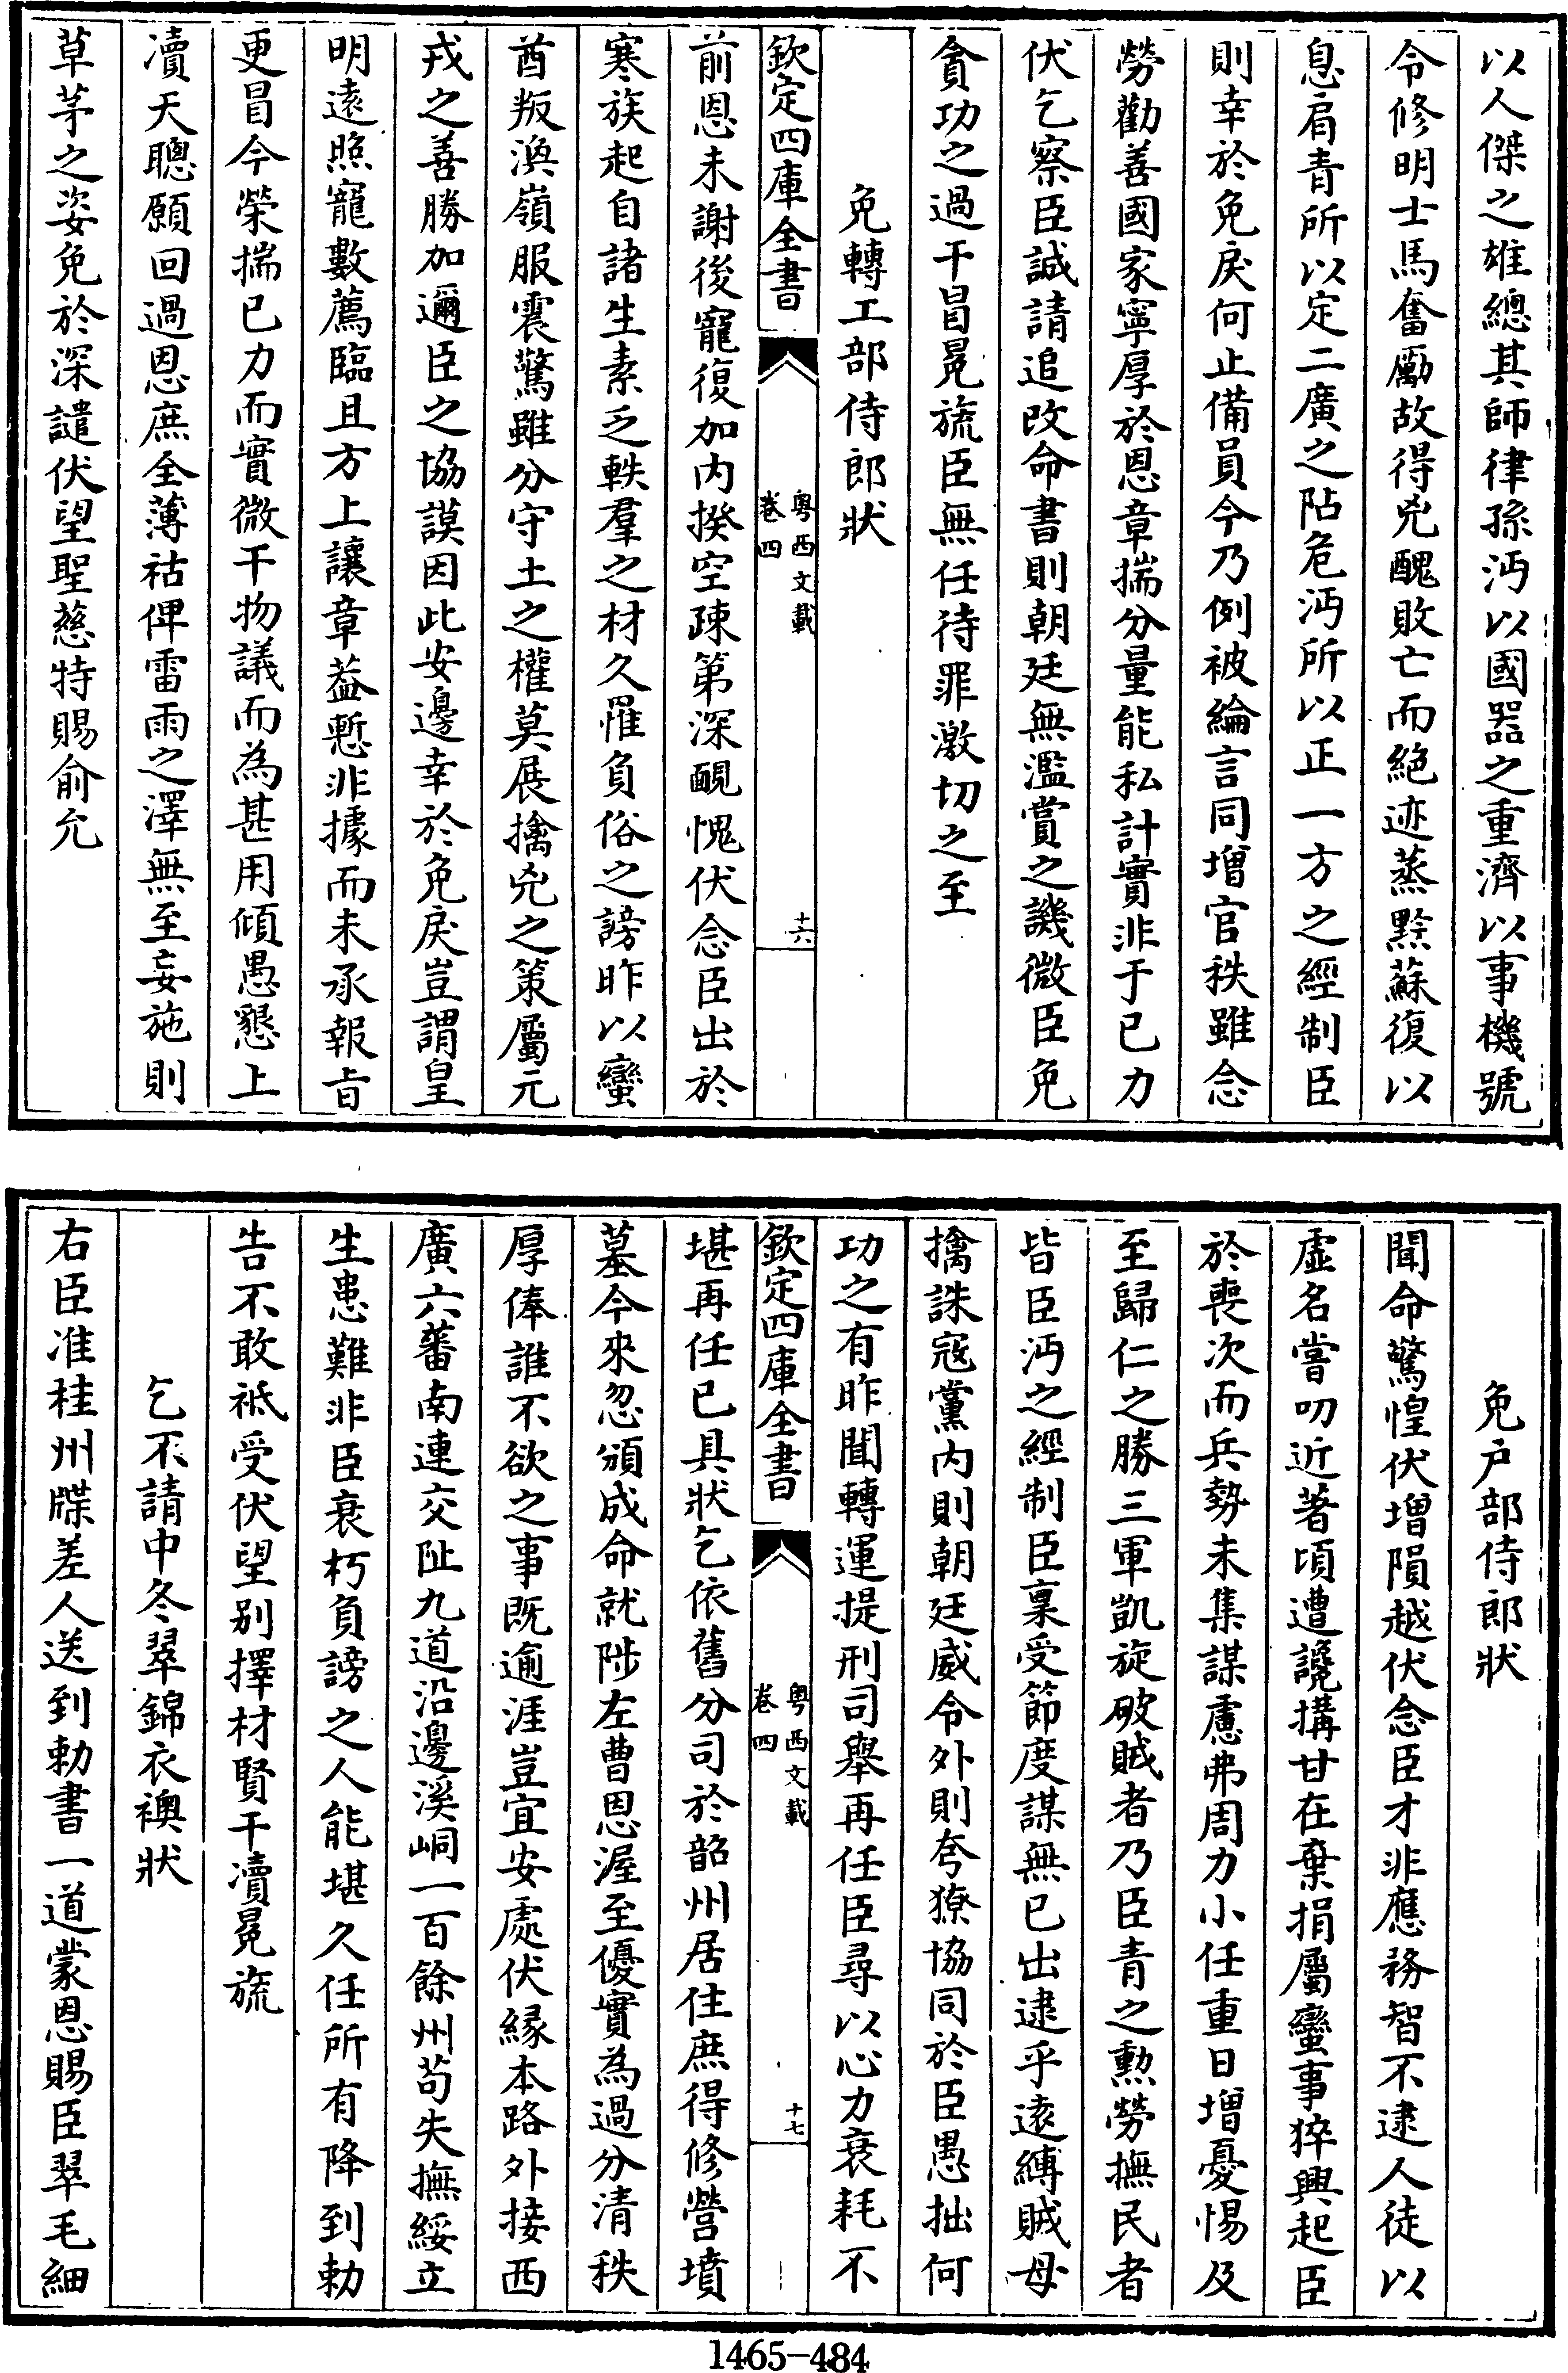 以人傑之雄總其師律孫沔以國器之重濟以事機號
令修明士馬奮勵故得兇醜敗亡而絕迹蒸黥蘇復以
息肩青所以定二廣之阽危沔所以正一方之經制臣
則幸於免戾何止備員今乃例被綸言同增官秩雖念
勞勸善國家寧厚於恩章揣分量能私計實非于已力
伏乞察臣誠請追改命書則朝廷無濫賞之譏微臣免
貪功之過干冒冕旒臣無任待罪激切之至
免轉工部侍郎狀
欽定四庫全書
粤西文載
卷四
十六
前恩未謝後寵復加内揆空疎第深靦愧伏念臣出於
寒族起自諸生素乏軼羣之材久罹負俗之謗昨以蠻
酋叛渙嶺服震驚雖分守土之權莫展擒兇之策屬元
戎之善勝加邇臣之協謨因此安邊幸於免戾豈謂皇
明遠照寵數薦臨且方上讓章葢慙非據而未承報㫖
更冒今榮揣已力而實微干物議而為甚用傾愚懇上
瀆天聰願回過恩庶全薄祜俾雷雨之澤無至妄施則
草茅之姿免於深譴伏望聖慈特賜俞允
免戶部侍郎狀
聞命驚惶伏增隕越伏念臣才非應務智不逮人徒以
虛名嘗叨近著頃遭讒搆甘在棄捐屬蠻事猝興起臣
於喪次而兵勢未集謀慮弗周力小任重日增憂惕及
至歸仁之勝三軍凱旋破賊者乃臣青之勲勞撫民者
皆臣沔之經制臣稟受節度謀無已出逮乎遠縛賊母
擒誅寇黨内則朝廷威令外則夸獠協同於臣愚拙何
功之有昨聞轉運提刑司舉再任臣尋以心力衰耗不
欽定四庫全書
粤西文載
卷四
十七
堪再任已具狀乞依舊分司於韶州居住庶得修營墳
墓今來忽頒成命就陟左曹恩渥至優實為過分清秩
厚俸誰不欲之事既逾涯豈宜安處伏緣本路外接西
廣六蕃南連交阯九道沿邊溪峒一百餘州苟失撫綏立
生患難非臣衰朽負謗之人能堪久任所有降到勅
告不敢祗受伏望别擇材賢干瀆冕旒
乞不請中冬翠錦衣襖狀
右臣准桂州牒差人送到勅書一道蒙恩賜臣翠毛細
1465-484